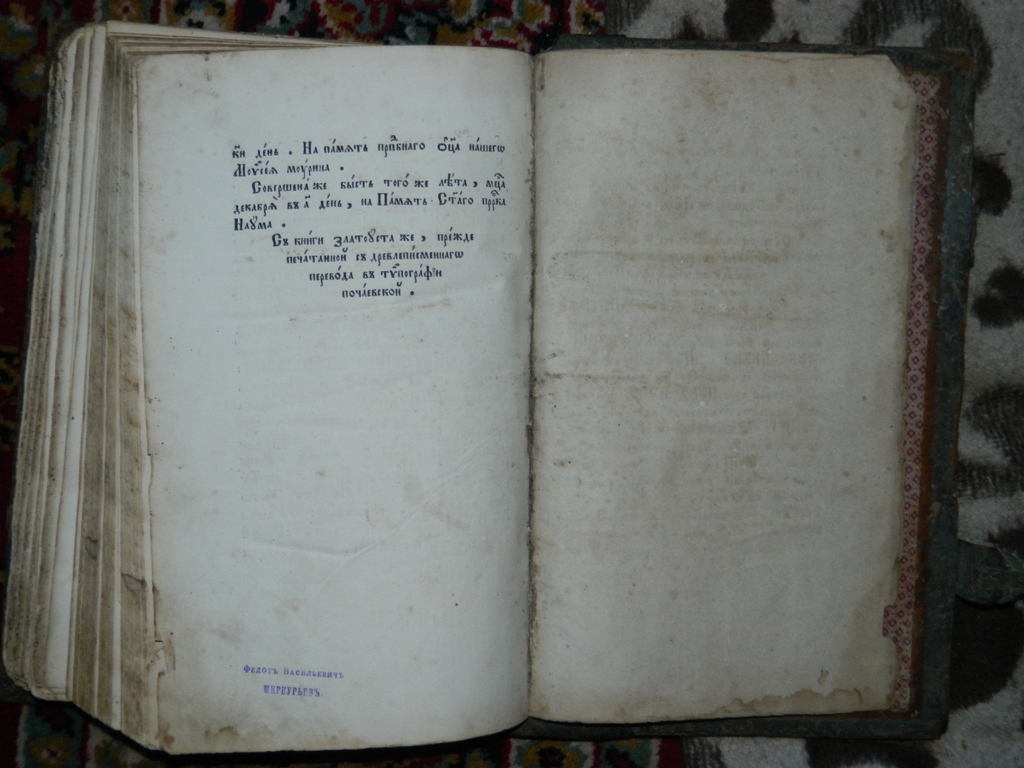 к҃и де́нь . На па́мѧть прпⷣбнаго ѻ҆ц҃а на́шегѡ
Моѷсе́ѧ моѵ́рина .
Соверше́на же бы́сть того́ же лѣ́та , мц҃а
декабрѧ̀ въ а҃ де́нь , на Па́мѧть Ст҃а́го прⷪ҇рка
Наѹ́ма .
Съ кни́ги златоѹста же , пре́жде
печа́таннои съ древлепи́сменнагѡ
перево́да въ тѷпогра́фїи
поча́евскои .
Ѳедотъ Васильевичъ
МЕРКУРЬЕВЪ.